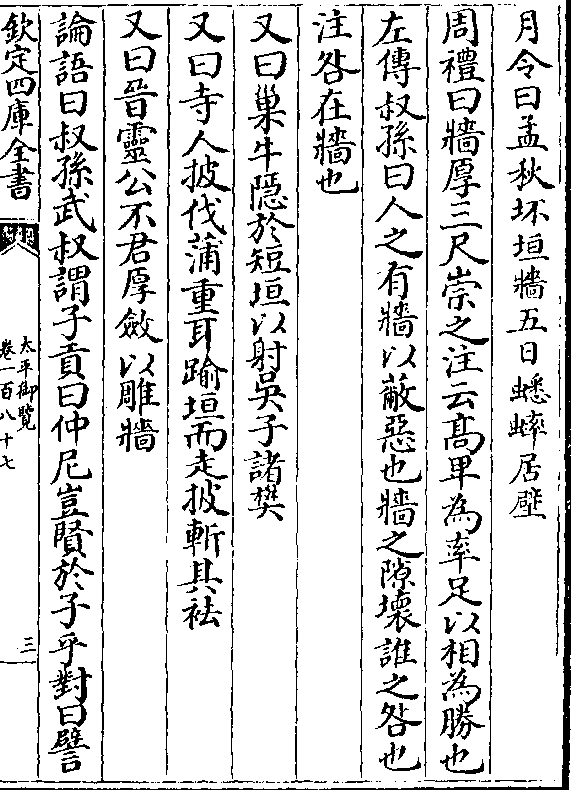 月令曰孟秋坏垣牆五日蟋蟀居壁
周禮曰牆厚三尺崇之注云髙卑為率足以相為勝也
左傳叔孫曰人之有牆以蔽惡也牆之隙壞誰之咎也
注咎在牆也
又曰巢牛隱於短垣以射吳子諸樊
又曰寺人披伐蒲重耳踰垣而走披斬其袪
又曰晉靈公不君厚斂以雕牆
論語曰叔孫武叔謂子貢曰仲尼豈賢於子乎對曰譬
欽定四庫全書
太平御覽
卷一百八十七
三